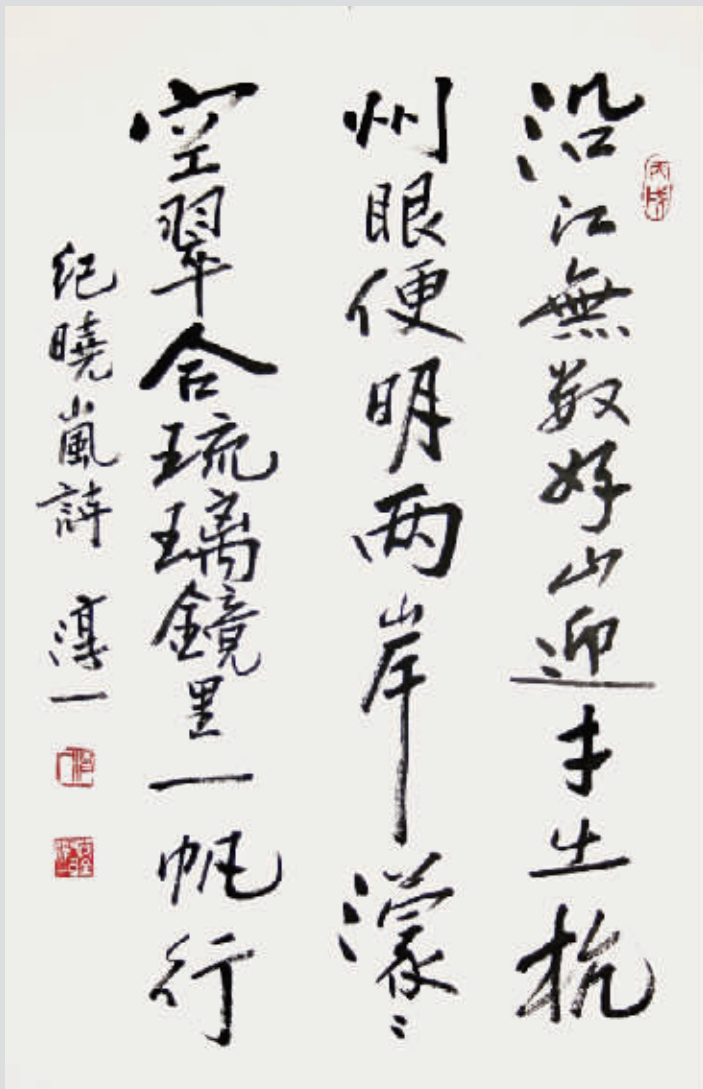 沿江無数好山迎才出杭
州眼便明两岸濛〻
空翠合琉璃鏡里一帆行
紀曉嵐詩 淳一